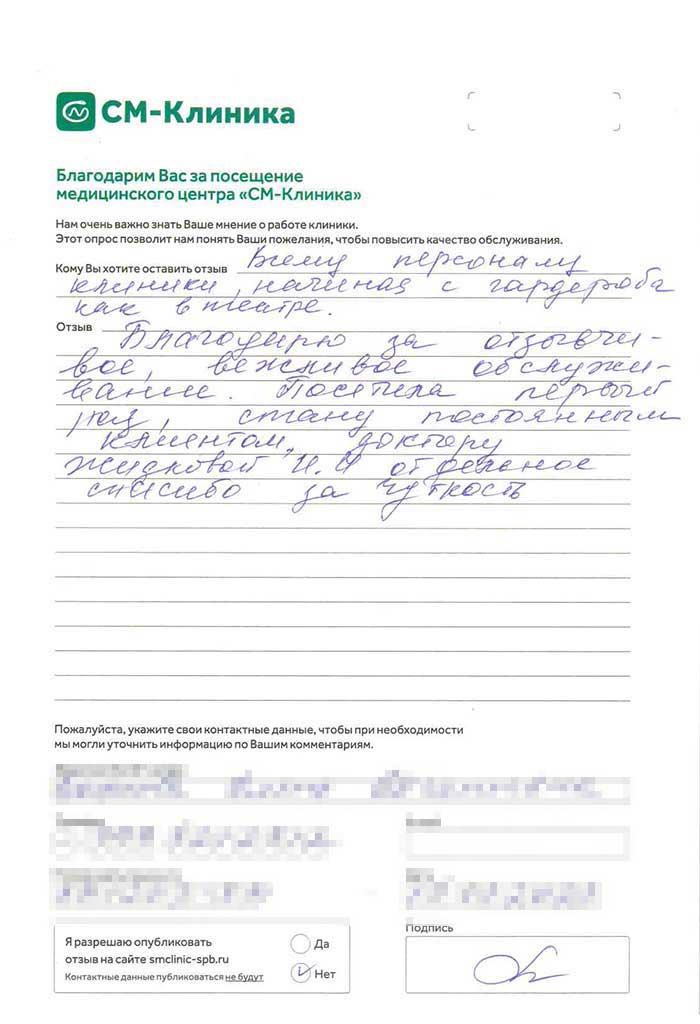 СМ-Клиника
Благодарим Вас за посещение
медицинского центра «СМ-Клиника»
Нам очень важно знать Ваше мнение о работе клиники.
Этот опрос позволит нам понять Ваши пожелания, чтобы повысить качество обслуживания.
Кому Вы хотите оставить отзыв Всему персоналу
клиники, начиная с гардероба
как в театре.
Отзыв Благодарю за отзывчи-
вое, вежливое обслужи-
вание. Посетила первый
раз, стану постоянным
клиентом, доктору
Жидковой И.И отдельное
спасибо за чуткость
Пожалуйста, укажите свои контактные данные, чтобы при необходимости
мы могли уточнить информацию по Вашим комментариям.
Я разрешаю опубликовать
отзыв на сайте smclinic-spb.ru
Контактные данные публиковаться не будут
Да
Нет
Подпись